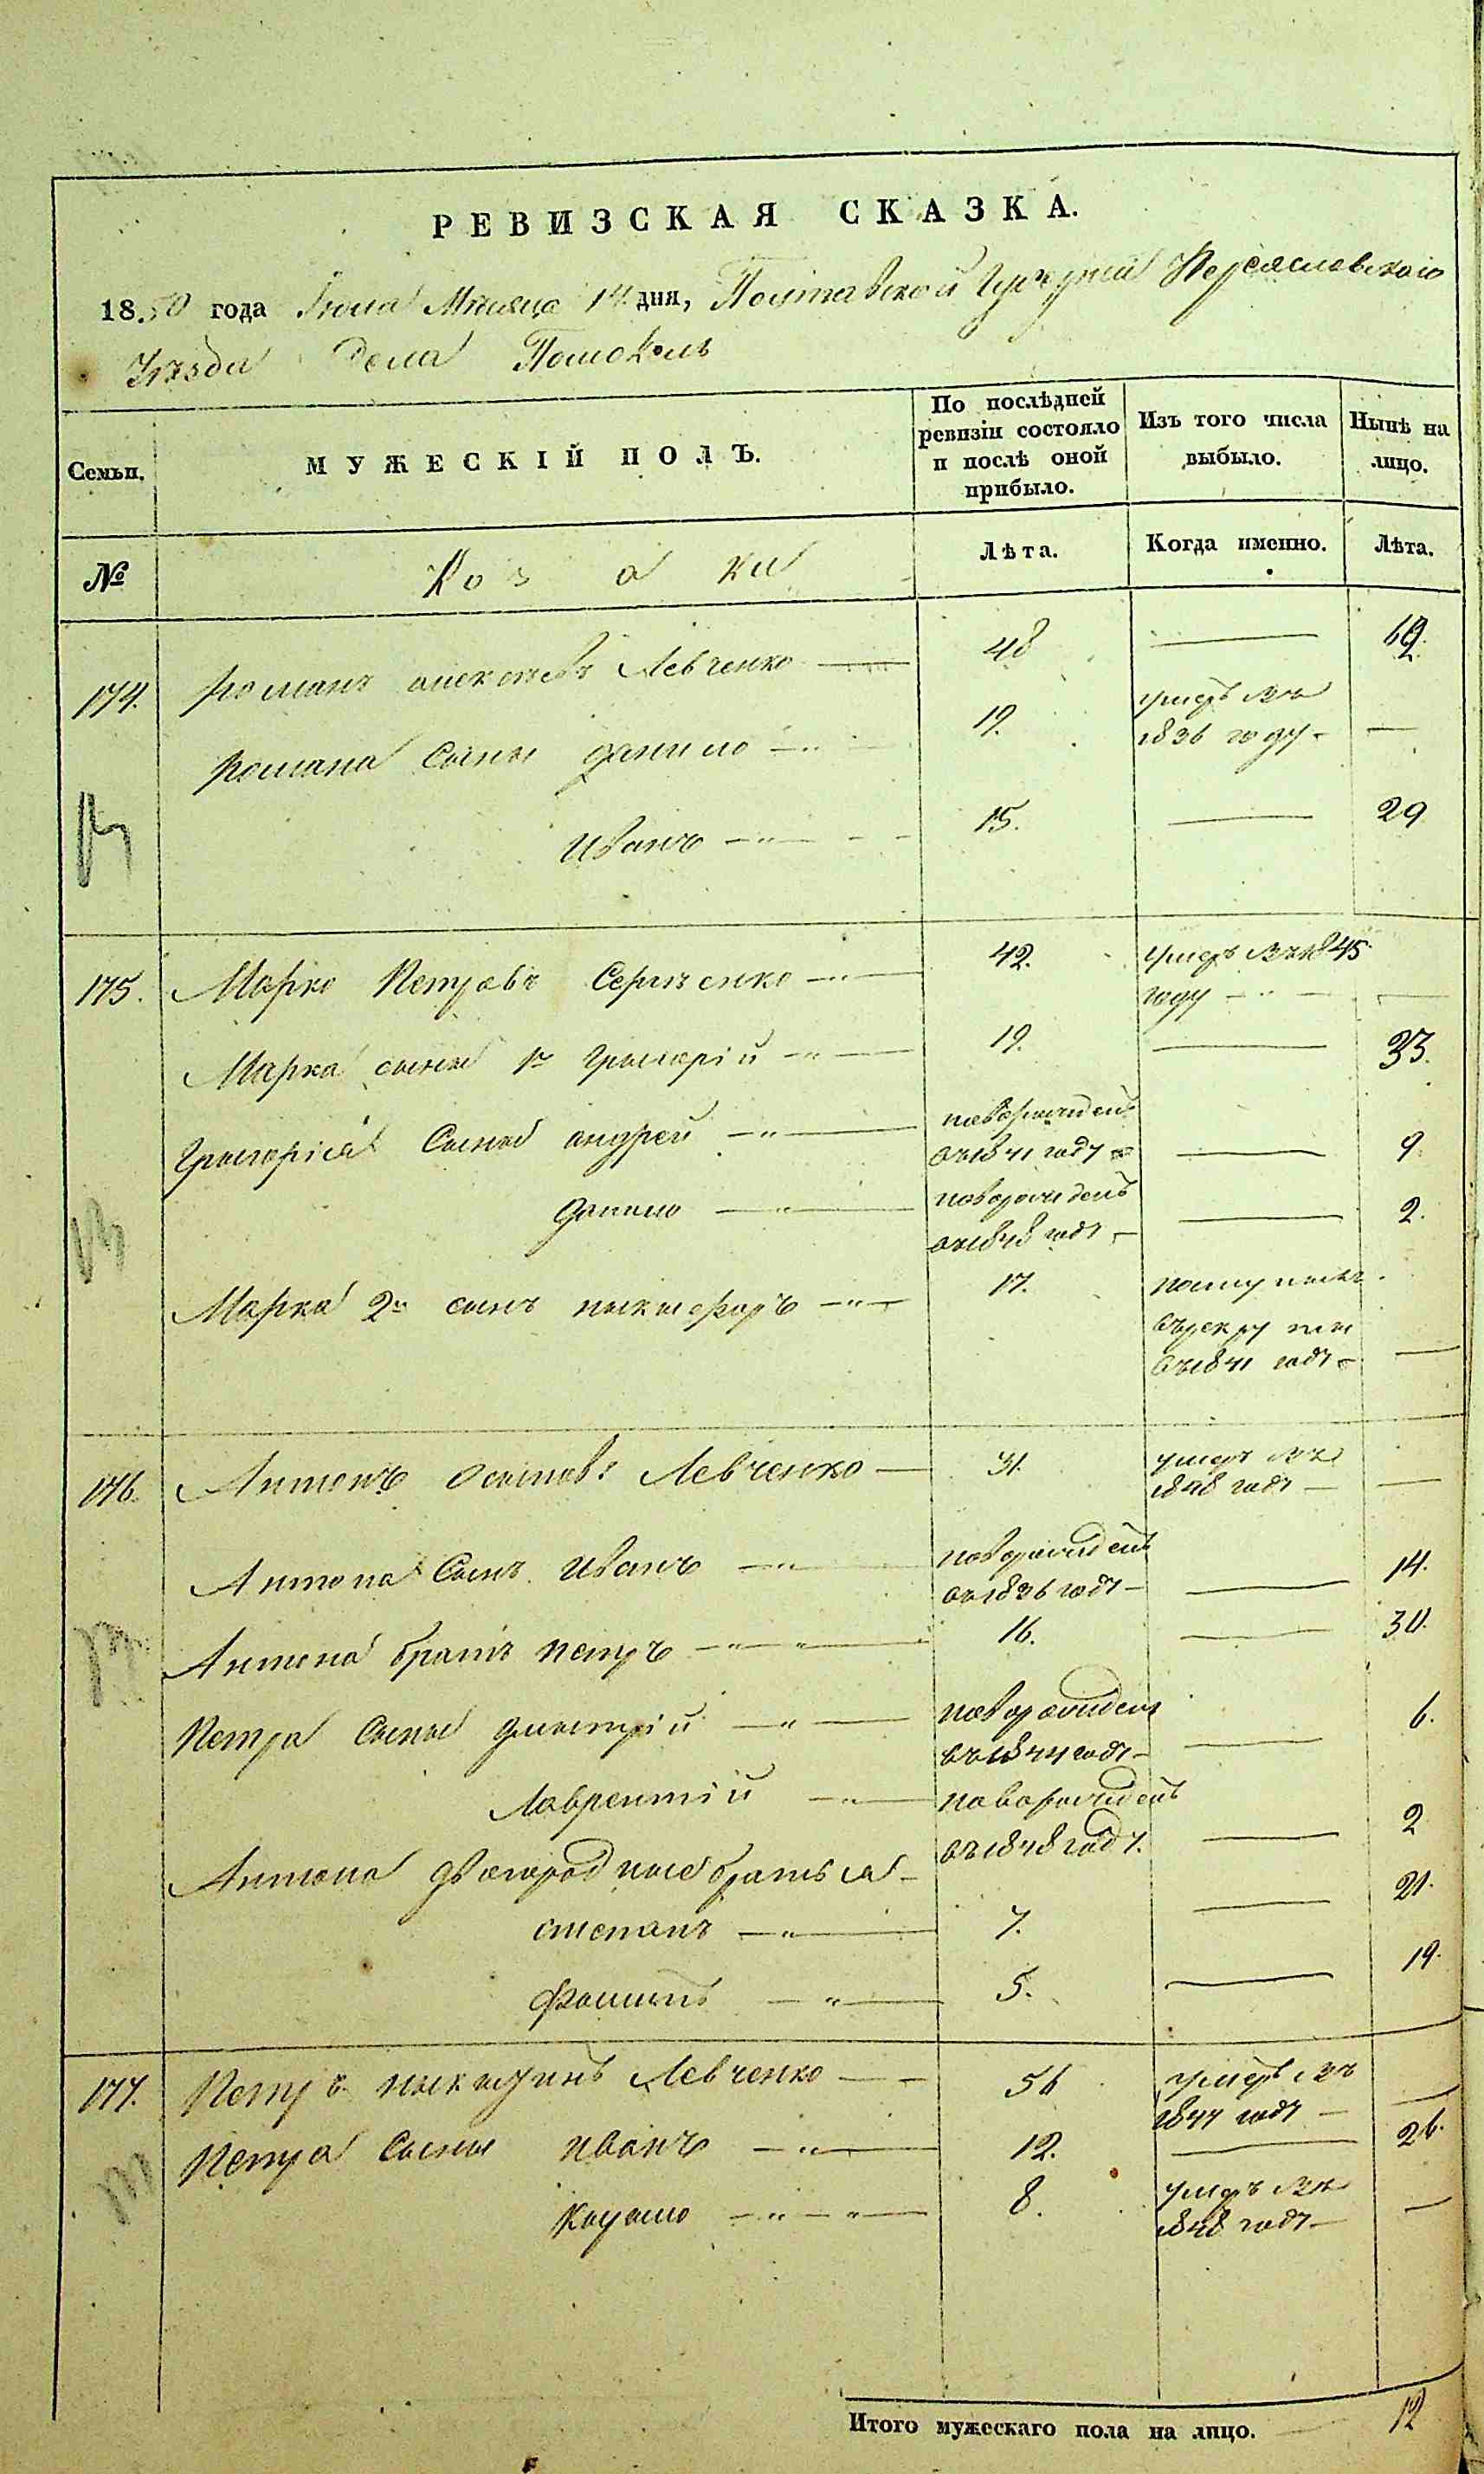 РЕВИЗСКАЯ СКАЗКА.
1850 года Іюля Мѣсяца 14 дня, Полтавской Губерніи Переяславского
Уѣзда Села Помокль
Семьи.
МУЖЕСКІЙ ПОЛЪ.
По послѣдней ревизіи состояло и послѣ оной прибыло.
Изъ того числа выбыло.
Нынѣ на лицо.
№
Козаки
Лѣта.
Когда именно.
Лѣта.
174. Романъ алексѣевъ Левченко 48 62.
Романа сыны данило 19. умеръ въ
1836 году
Иванъ 15. 29
175. Марко Петровъ Сергѣенко 42. умеръ въ 1845
году
Марка сыны 1й Григорій 19. 33.
Григорія Сыны андрей новорожденъ
въ 1841 году 9
данило новорожденъ 2.
въ 1848 году
Марка 2й сынъ никифоръ 17. поступилъ
въ рекруты
въ 1841 году
176. Антонъ Осиповъ Левченко 31. умеръ въ
1848 году
Антона Сынъ Иванъ новорожденъ
въ 1836 году 14.
Антона братъ петръ 16. 30.
Петра Сыны дмитрій новорожденъ 6.
въ 1844 году
Лаврентій новорожденъ
въ 1848 году. 2
Антона двоюродные братья
степанъ 7. 21.
Филипъ 5. 19.
177. Петръ никитинъ Левченко 56 умеръ въ
1844 году
Петра сыны иванъ 12. 26.
8. умеръ въ
1848 году
Итого мужескаго пола на лицо. 12